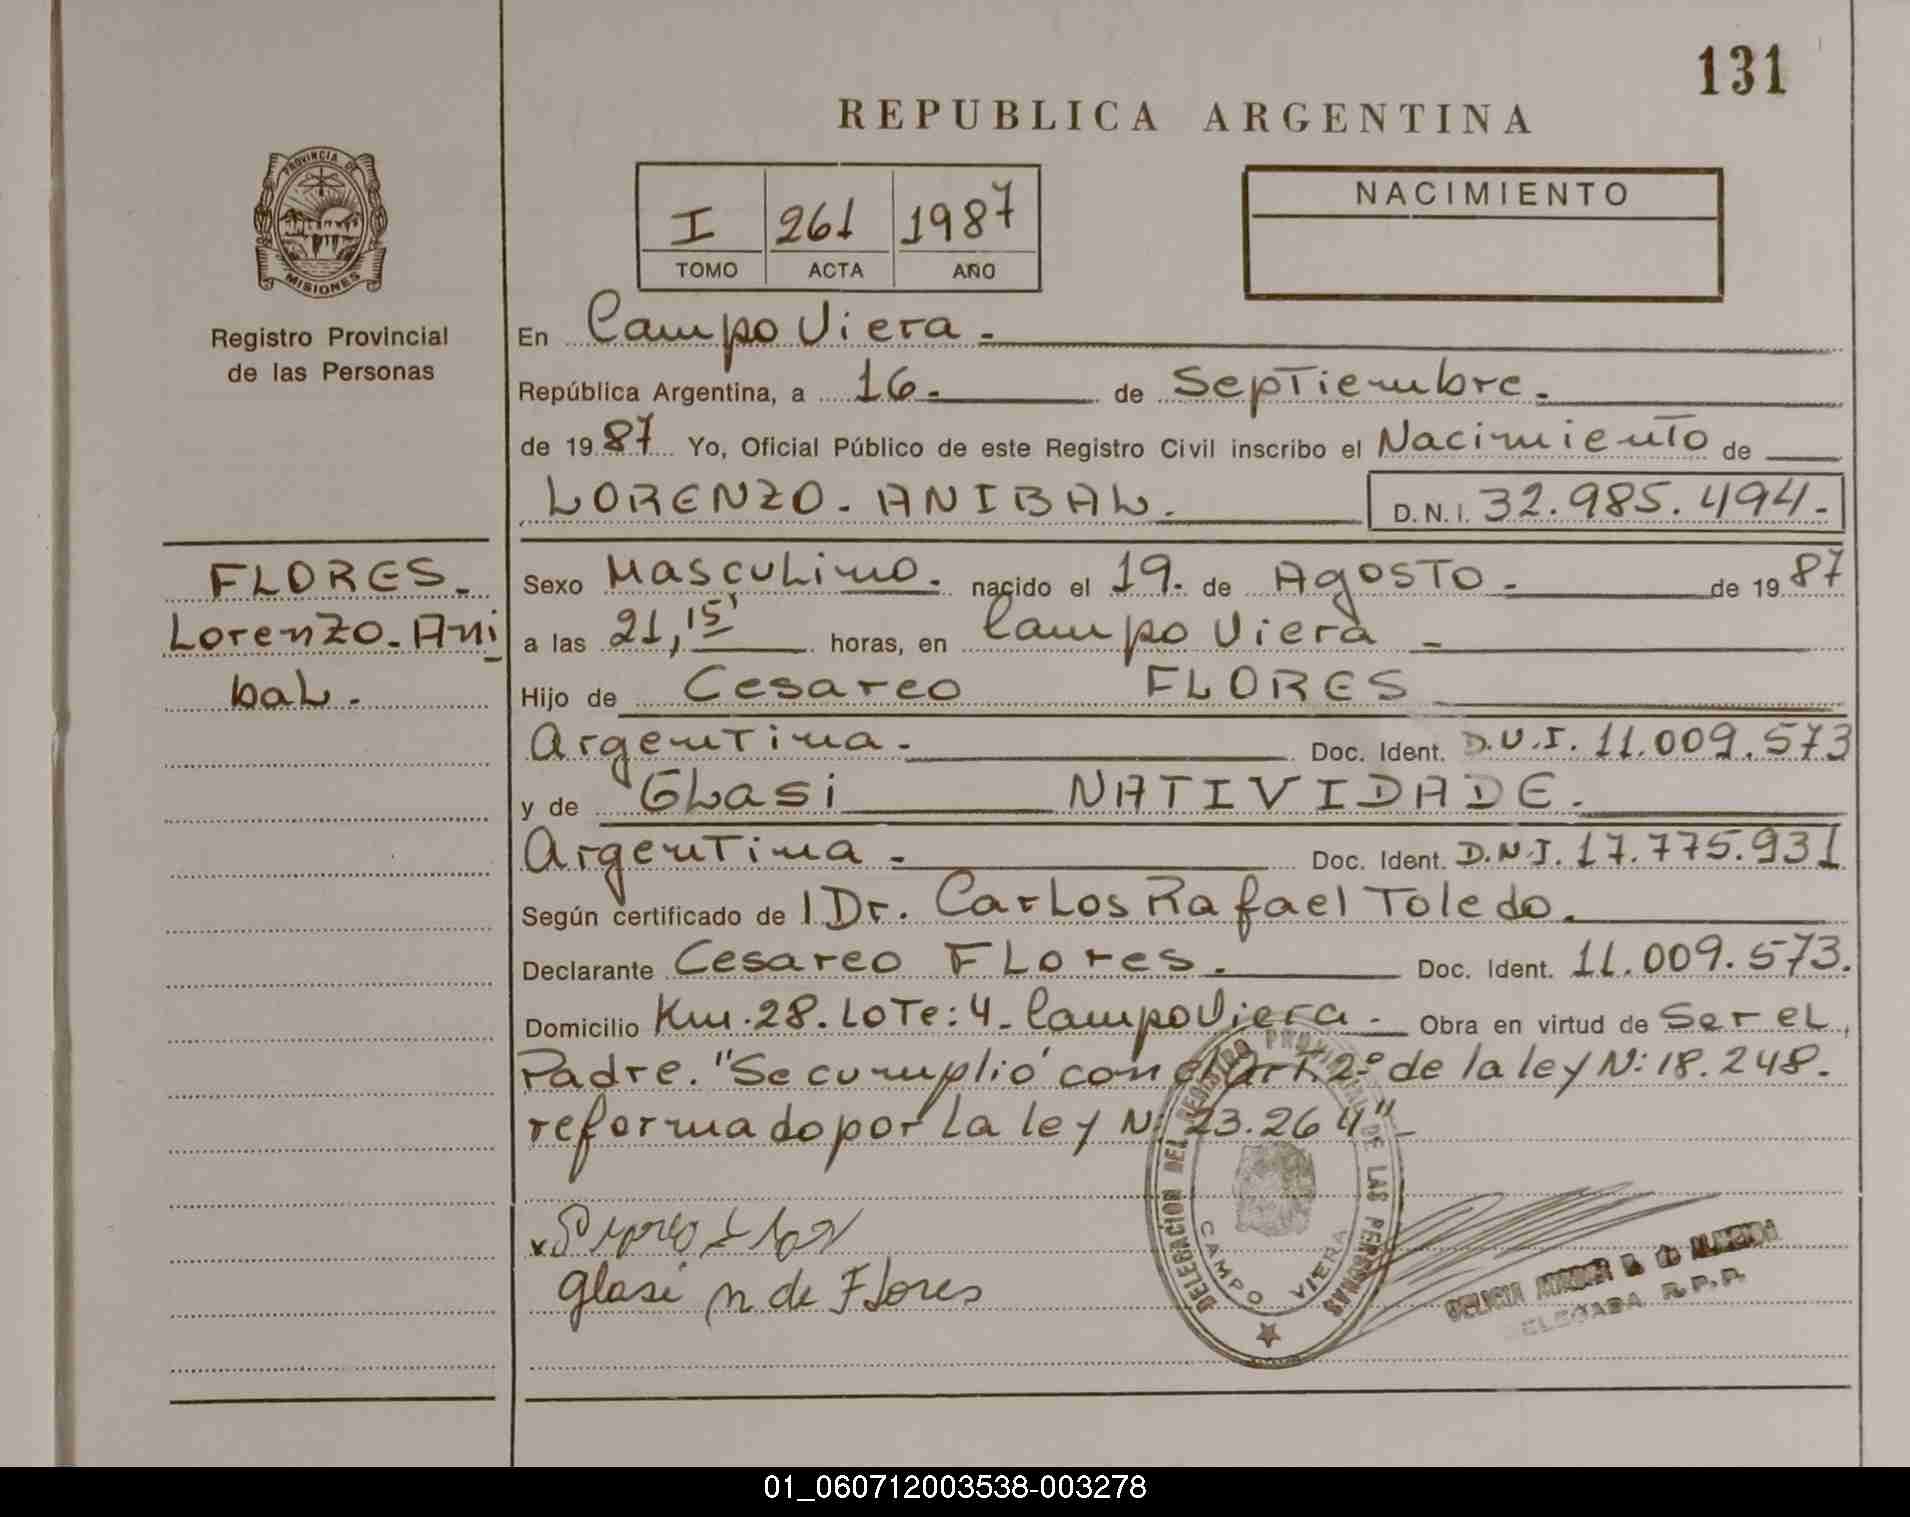 131
REPUBLICA ARGENTINA
PROVINCIA DE
MISIONES
Registro Provincial
de las Personas
I 261 1987
TOMO ACTA AÑO
NACIMIENTO
En Campo Viera.
República Argentina, a 16. de Septiembre.
de 1987 Yo, Oficial Público de este Registro Civil inscribo el Nacimiento de
LORENZO. ANIBAL. D.N.I. 32.985.494.
FLORES.
Lorenzo. Ani
baL.
Sexo Masculino. nacido el 19. de Agosto. de 1987
a las 21,15' horas, en Campo Viera
Hijo de Cesareo FLORES
Argentina. Doc. Ident. D.N.I. 11.009.573
y de GLasi NATIVIDADE.
Argentina. Doc. Ident. D.N.I. 17.775.931
Según certificado de l Dr. Carlos Rafael Toledo.
Declarante Cesareo FLores. Doc. Ident. 11.009.573.
Domicilio Km. 28. Lote: 4. Campo Viera. Obra en virtud de Ser el
Padre. "Se cumplió con el Art. 2º de la ley N: 18.248.
reformado por La ley N: 23.264"
DELEGACION DEL REGISTRO PROVINCIAL DE LAS PERSONAS
CAMPO VIERA
glasi n de Flores
DELEGADA R.P.P.
01_060712003538-003278